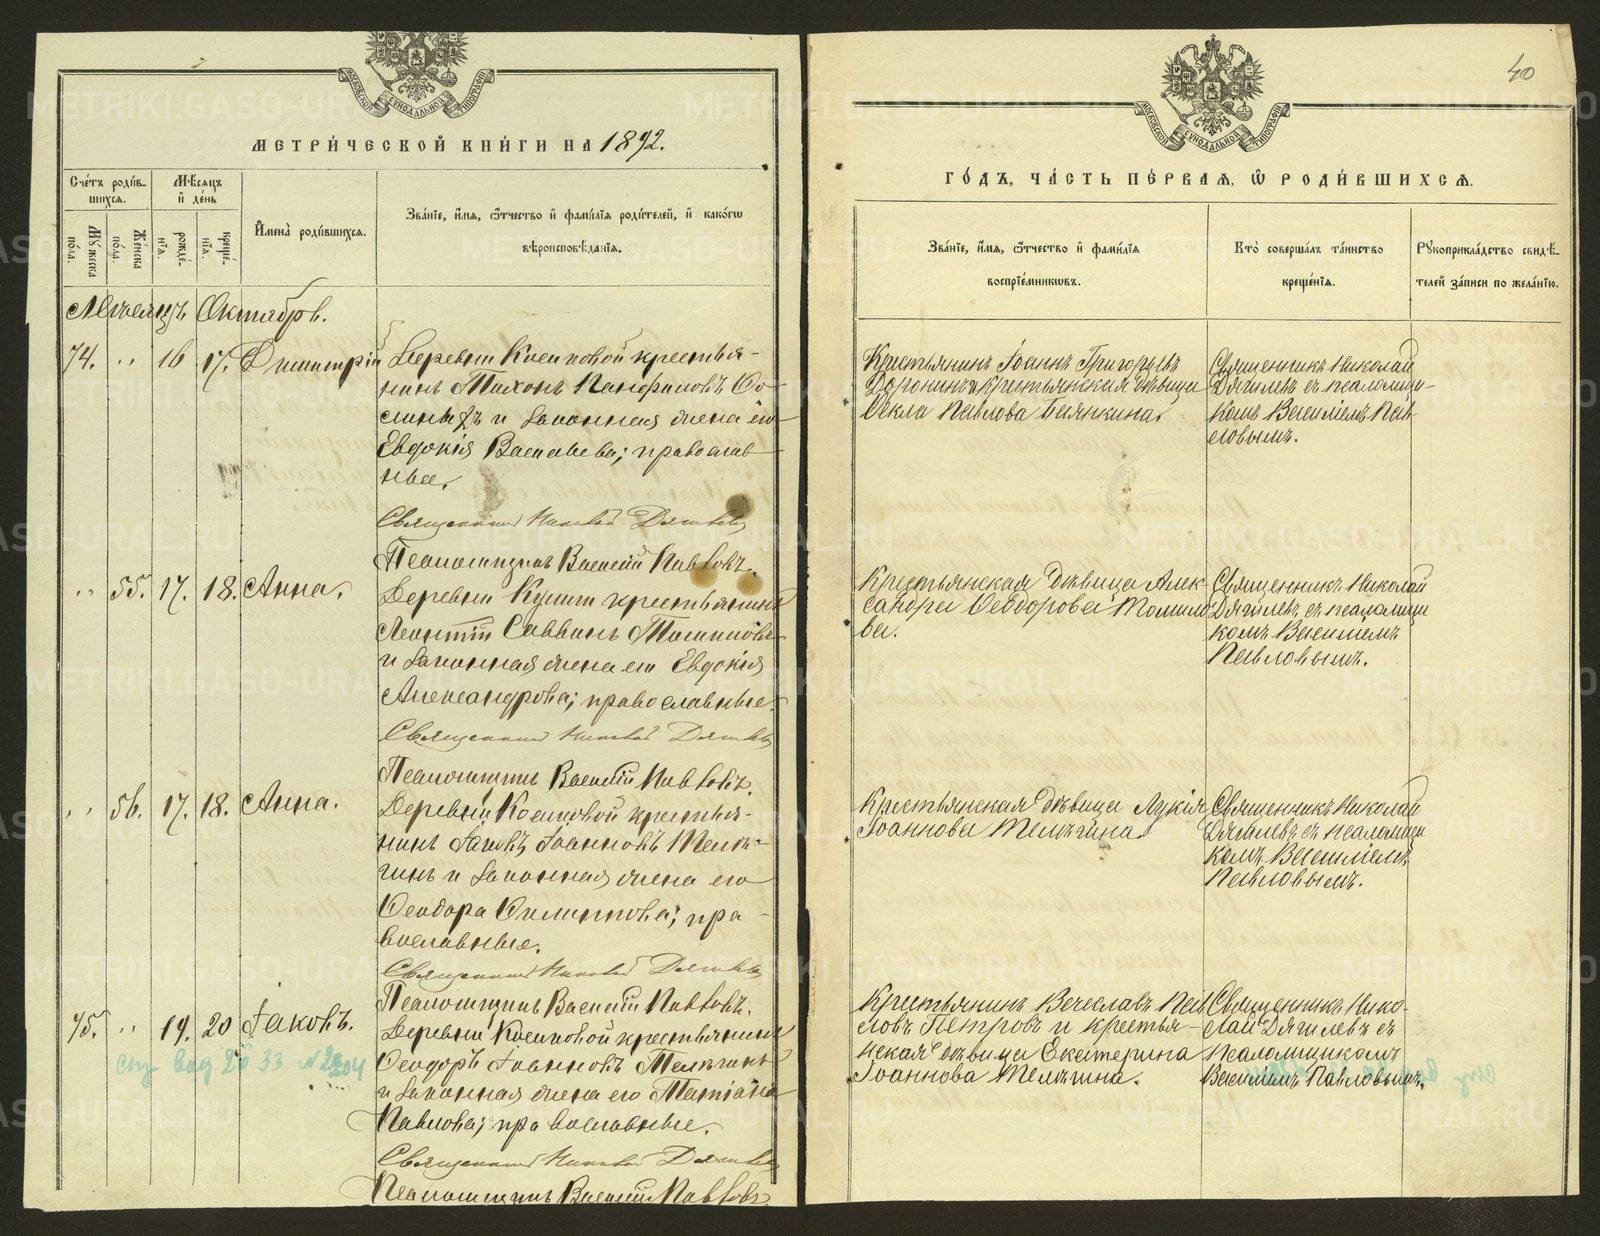 МЕТРИ́ЧЕСКОЙ КНИ́ГИ НА 1892.
Сче́тъ роди́в-
шихся.
Мѣ́сяцъ
и҆ де́нь
Мꙋ́жеска
по́ла.
Же́нска
по́ла.
рожде́-
нїя.
креще́-
нїя.
И҆мена̀ роди́вшихся.
Зва́нїе, и҆́мя, ѻ҆́тчество и҆ фами́лїя роди́телей, и҆ како́гѡ
вѣроисповѣ́данїя.
Мѣсяцъ Октябрь.
74. " 16 17. Димитрій
Деревни Косиковой крестья-
нинъ Тихонъ Панфиловъ
и законная жена его
Евдокія Васильева; православ-
ные.
Священникъ Николай Дягилевъ
Псаломщикъ Василій Павловъ.
" 55. 17. 18. Анна.
Деревни крестьянинъ
Леонтій Саввинъ Томиловъ
и законная жена его Евдокія
Александрова; православные.
Священникъ Николай Дягилевъ
Псаломщикъ Василій Павловъ.
" 56. 17. 18. Анна.
Деревни Косиковой крестья-
нинъ Іаковъ Іоанновъ Телѣ-
гинъ и законная жена его
Ѳеодора Филиппова; пра-
вославные.
Священникъ Николай Дягилевъ
Псаломщикъ Василій Павловъ.
75. " 19. 20 Іаковъ.
Деревни Косиковой крестьянинъ
Ѳеодоръ Іоанновъ Телѣгинъ
и законная жена его Татіана
Павлова; православные.
Священникъ Николай Дягилевъ
Псаломщикъ Василій Павловъ.
40
МОСКОВСКОЙ СѴНОДАЛЬНОЙ ТИПОГРАФІИ
ГО́ДЪ, ЧА́СТЬ ПЕ́РВАЯ, Ѽ РОДИ́ВШИХСЯ.
Зва́нїе, и҆́мя, ѻ҆́тчество и҆ фами́лїя
воспрїе́мникѡвъ.
Кто̀ соверша́лъ та́инство
креще́нїя.
Рꙋкоприкла́дство свидѣ́-
телей за́писи по жела́нїю.
Крестьянинъ Іоаннъ Григорьевъ
Доронинъ и крестьянская дѣвица
Ѳекла Павлова Белянкина.
Священникъ Николай
Дягилевъ съ псаломщи-
комъ Василіемъ Пав-
ловымъ.
Крестьянская дѣвица Алек-
сандра Ѳеодорова Томило-
ва.
Священникъ Николай
Дягилевъ съ псаломщи-
комъ Василіемъ
Павловымъ.
Крестьянская дѣвица Лукія
Іоаннова Телѣгина.
Священникъ Николай
Дягилевъ съ псаломщи-
комъ Василіемъ
Павловымъ.
Крестьянинъ Вечеславъ Пав-
ловъ Петровъ и крестья-
нская дѣвица Екатерина
Іоаннова Телѣгина.
Священникъ Нико-
лай Дягилевъ съ
псаломщикомъ
Василіемъ Павловымъ.
METRIKI.GASO-URAL.RU